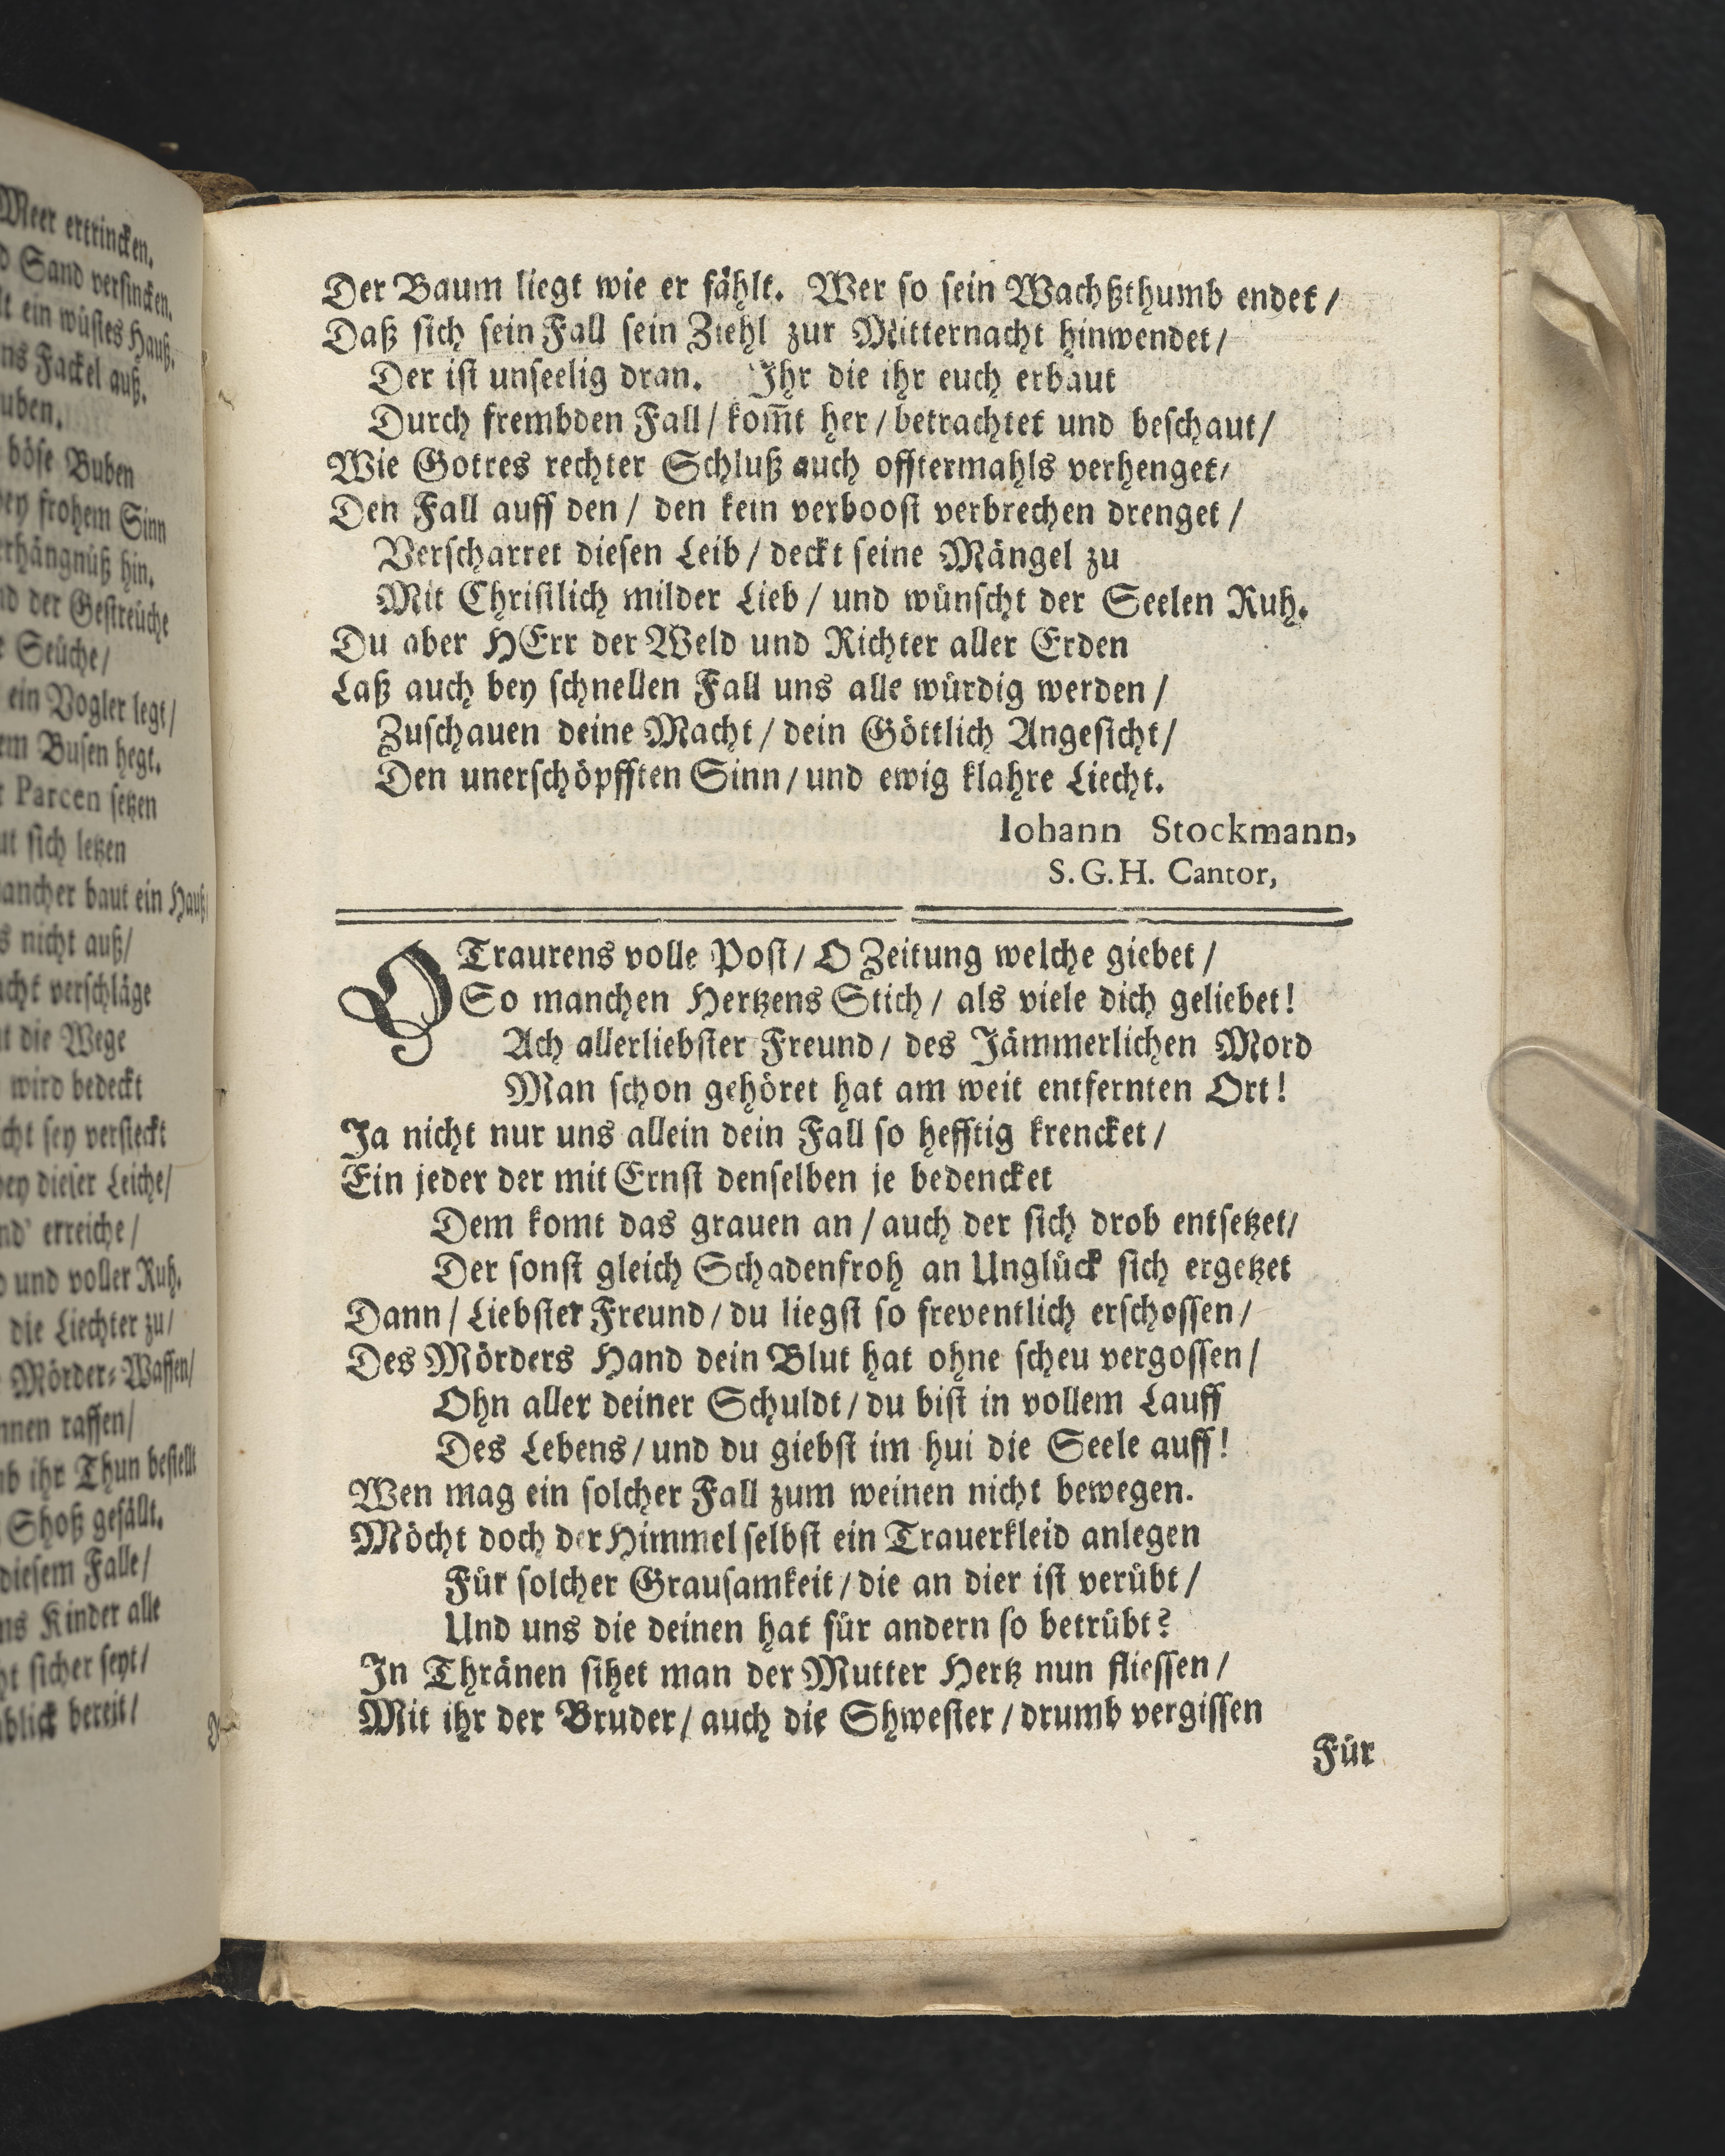 Meer ertrincken.
Sand versincken.
ein wüstes Hauß.
Fackel auß.
böse Buben
frohem Sinn
hin.
der Gestreüche
Seüche/
ein Vogler legt/
Busen hegt.
Parcen setzen
sich letzen
baut ein Hauß/
nicht auß/
verschläge
die Wege
wird bedeckt
sey versteckt
dieser Leiche/
erreiche/
und voller Ruh.
die Liechter zu/
Mörder-Waffen/
raffen/
ihr Thun bestellt
Shoß gefällt.
diesem Falle/
Kinder alle
sicher seyt/
bereit/
Der Baum liegt wie er fählt. Wer so sein Wachßthumb endet/
Daß sich sein Fall sein Ziehl zur Mitternacht hinwendet/
Der ist unseelig dran. Ihr die ihr euch erbaut
Durch frembden Fall/ kom̃t her/ betrachtet und beschaut/
Wie Gottes rechter Schluß auch offtermahls verhenget/
Den Fall auff den/ den kein verboost verbrechen drenget/
Verscharret diesen Leib/ deckt seine Mängel zu
Mit Christlich milder Lieb/ und wünscht der Seelen Ruh.
Du aber HErr der Weld und Richter aller Erden
Laß auch bey schnellen Fall uns alle würdig werden/
Zuschauen deine Macht/ dein Göttlich Angesicht/
Den unerschöpfften Sinn/ und ewig klahre Liecht.
Iohann Stockmann,
S.G.H. Cantor,
O Traurens volle Post/ O Zeitung welche giebet/
So manchen Hertzens Stich/ als viele dich geliebet!
Ach allerliebster Freund/ des Jämmerlichen Mord
Man schon gehöret hat am weit entfernten Ort!
Ja nicht nur uns allein dein Fall so hefftig krencket/
Ein jeder der mit Ernst denselben je bedencket
Dem komt das grauen an/ auch der sich drob entsetzet/
Der sonst gleich Schadenfroh an Unglück sich ergetzet
Dann/ Liebster Freund/ du liegst so freventlich erschossen/
Des Mörders Hand dein Blut hat ohne scheu vergossen/
Ohn aller deiner Schuldt/ du bist in vollem Lauff
Des Lebens/ und du giebst im hui die Seele auff!
Wen mag ein solcher Fall zum weinen nicht bewegen.
Möcht doch der Himmel selbst ein Trauerkleid anlegen
Für solcher Grausamkeit/ die an dier ist verübt/
Und uns die deinen hat für andern so betrübt?
In Thränen sihet man der Mutter Hertz nun fliessen/
Mit ihr der Bruder/ auch die Shwester/ drumb vergissen
Für